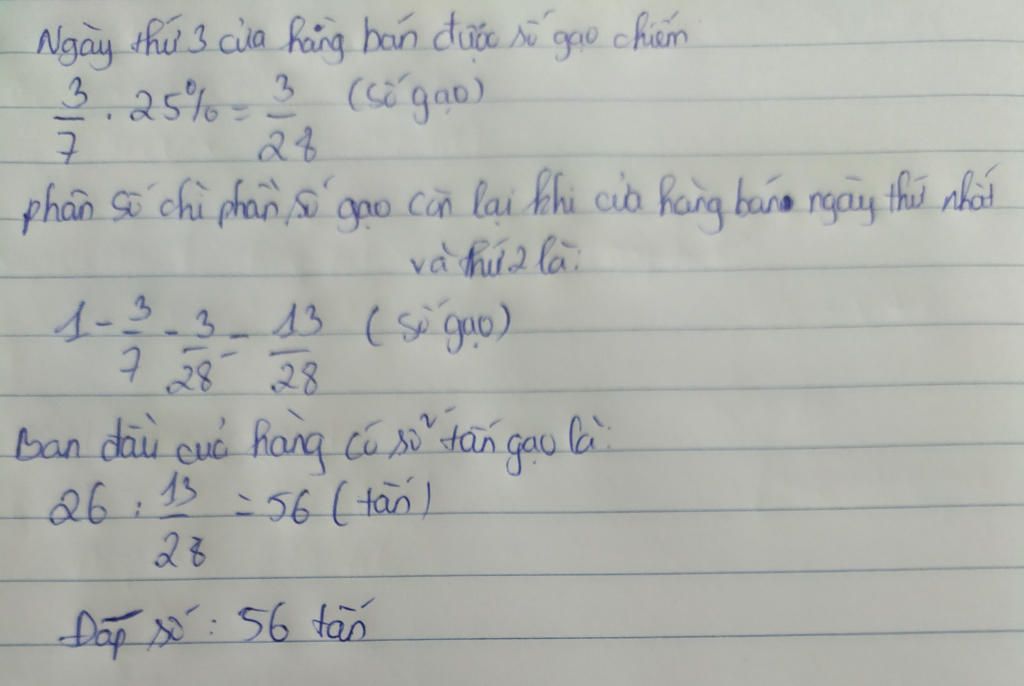 Ngày thứ 3 cửa hàng bán được số gạo chiếm
3/7 . 25% = 3/28 (số gạo)
phân số chỉ phần số gạo còn lại khi cửa hàng bán ngày thứ nhất
và thứ 2 là:
1 - 3/7 - 3/28 = 13/28 (số gạo)
Ban đầu cửa hàng có số tấn gạo là:
26 : 13/28 = 56 (tấn)
Đáp số : 56 tấn